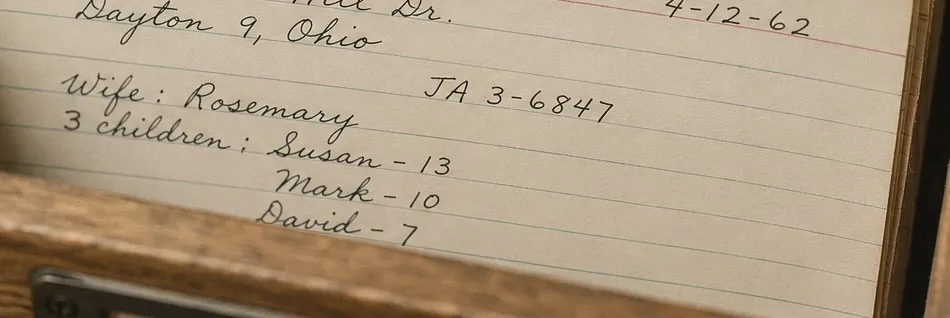 Dr. 4-12-62
Dayton 9, Ohio
JA 3-6847
Wife: Rosemary
3 children: Susan - 13
Mark - 10
David - 7